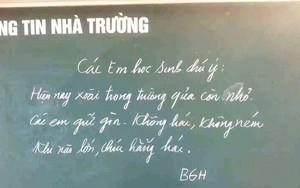 NG TIN NHÀ TRƯỜNG
Các Em học sinh chú ý:
Hiện nay xoài trong trường quả còn nhỏ.
Các em giữ gìn. Không hái, không ném
Khi nào lớn, chúc hằng hái.
BGH